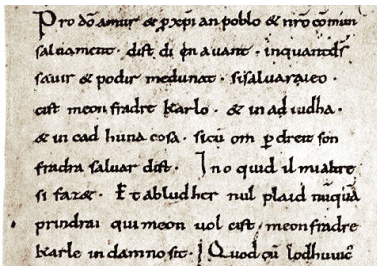 Pro dõ amur & p xp̃ian poblo & nr̃o cõmun
saluament. dist di en auant. inquantd̃s
sauir & podir medunat. sisaluaraieo.
cist meon fradre Karlo. & in ad iudha.
& in cad huna cosa. sicũ om p dreit son
fradra saluar dift. Ino quid il mialtre
si faz&. Et abludher nul plaid nũquã
prindrai qui meon uol cist. meonfradre
Karle in damno sit. Quod cũ lodhuuic̃